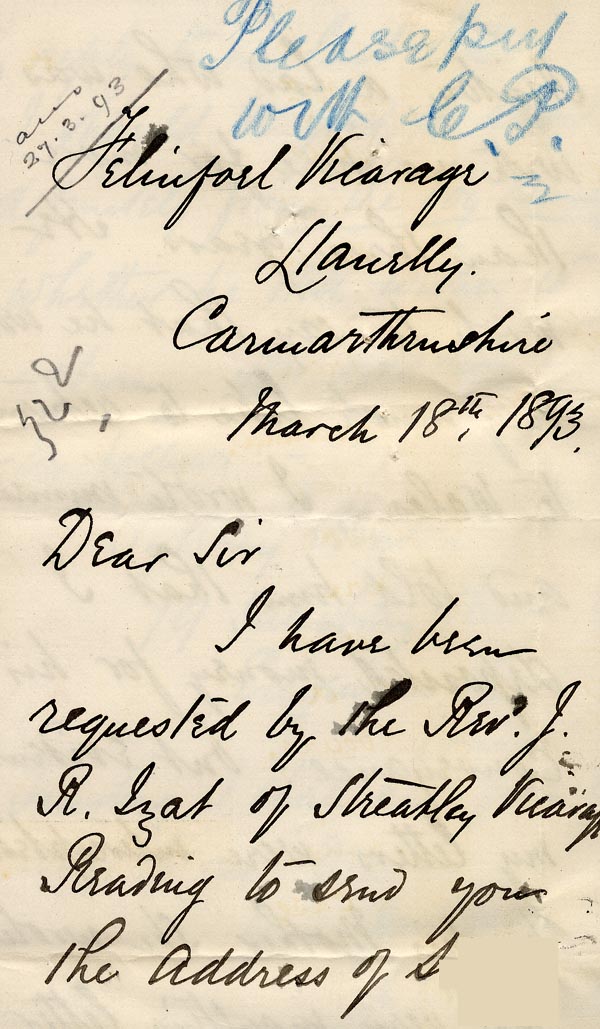 Please put
with C.P.
ans
27.3.93
Felinfoel Vicarage
Llanelly.
Carmarthenshire
March 18th, 1893.
Dear Sir
I have been
requested by the Rev'. J.
R. Izat of Streatley Vicarage
Reading to send you
the address of S